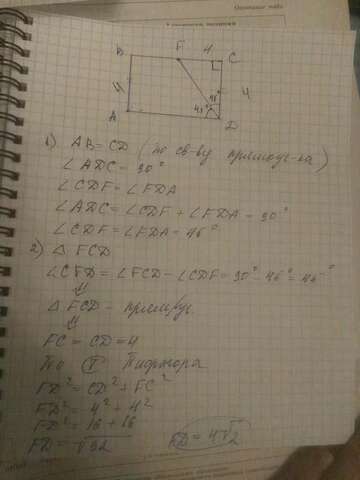 B F 4 C
4 4
45°
45°
A D
1) AB = CD (по св-ву прямоуг-ка)
∠ADC = 90°
∠CDF = ∠FDA
∠ADC = ∠CDF + ∠FDA = 90°
∠CDF = ∠FDA = 45°
2) △ FCD
∠CFD = ∠FCD - ∠CDF = 90° - 45° = 45°
⇓
△ FCD - прямоуг.
⇓
FC = CD = 4
По Т Пифагора
FD² = CD² + FC²
FD² = 4² + 4²
FD² = 16 + 16
FD = √32 FD = 4√2